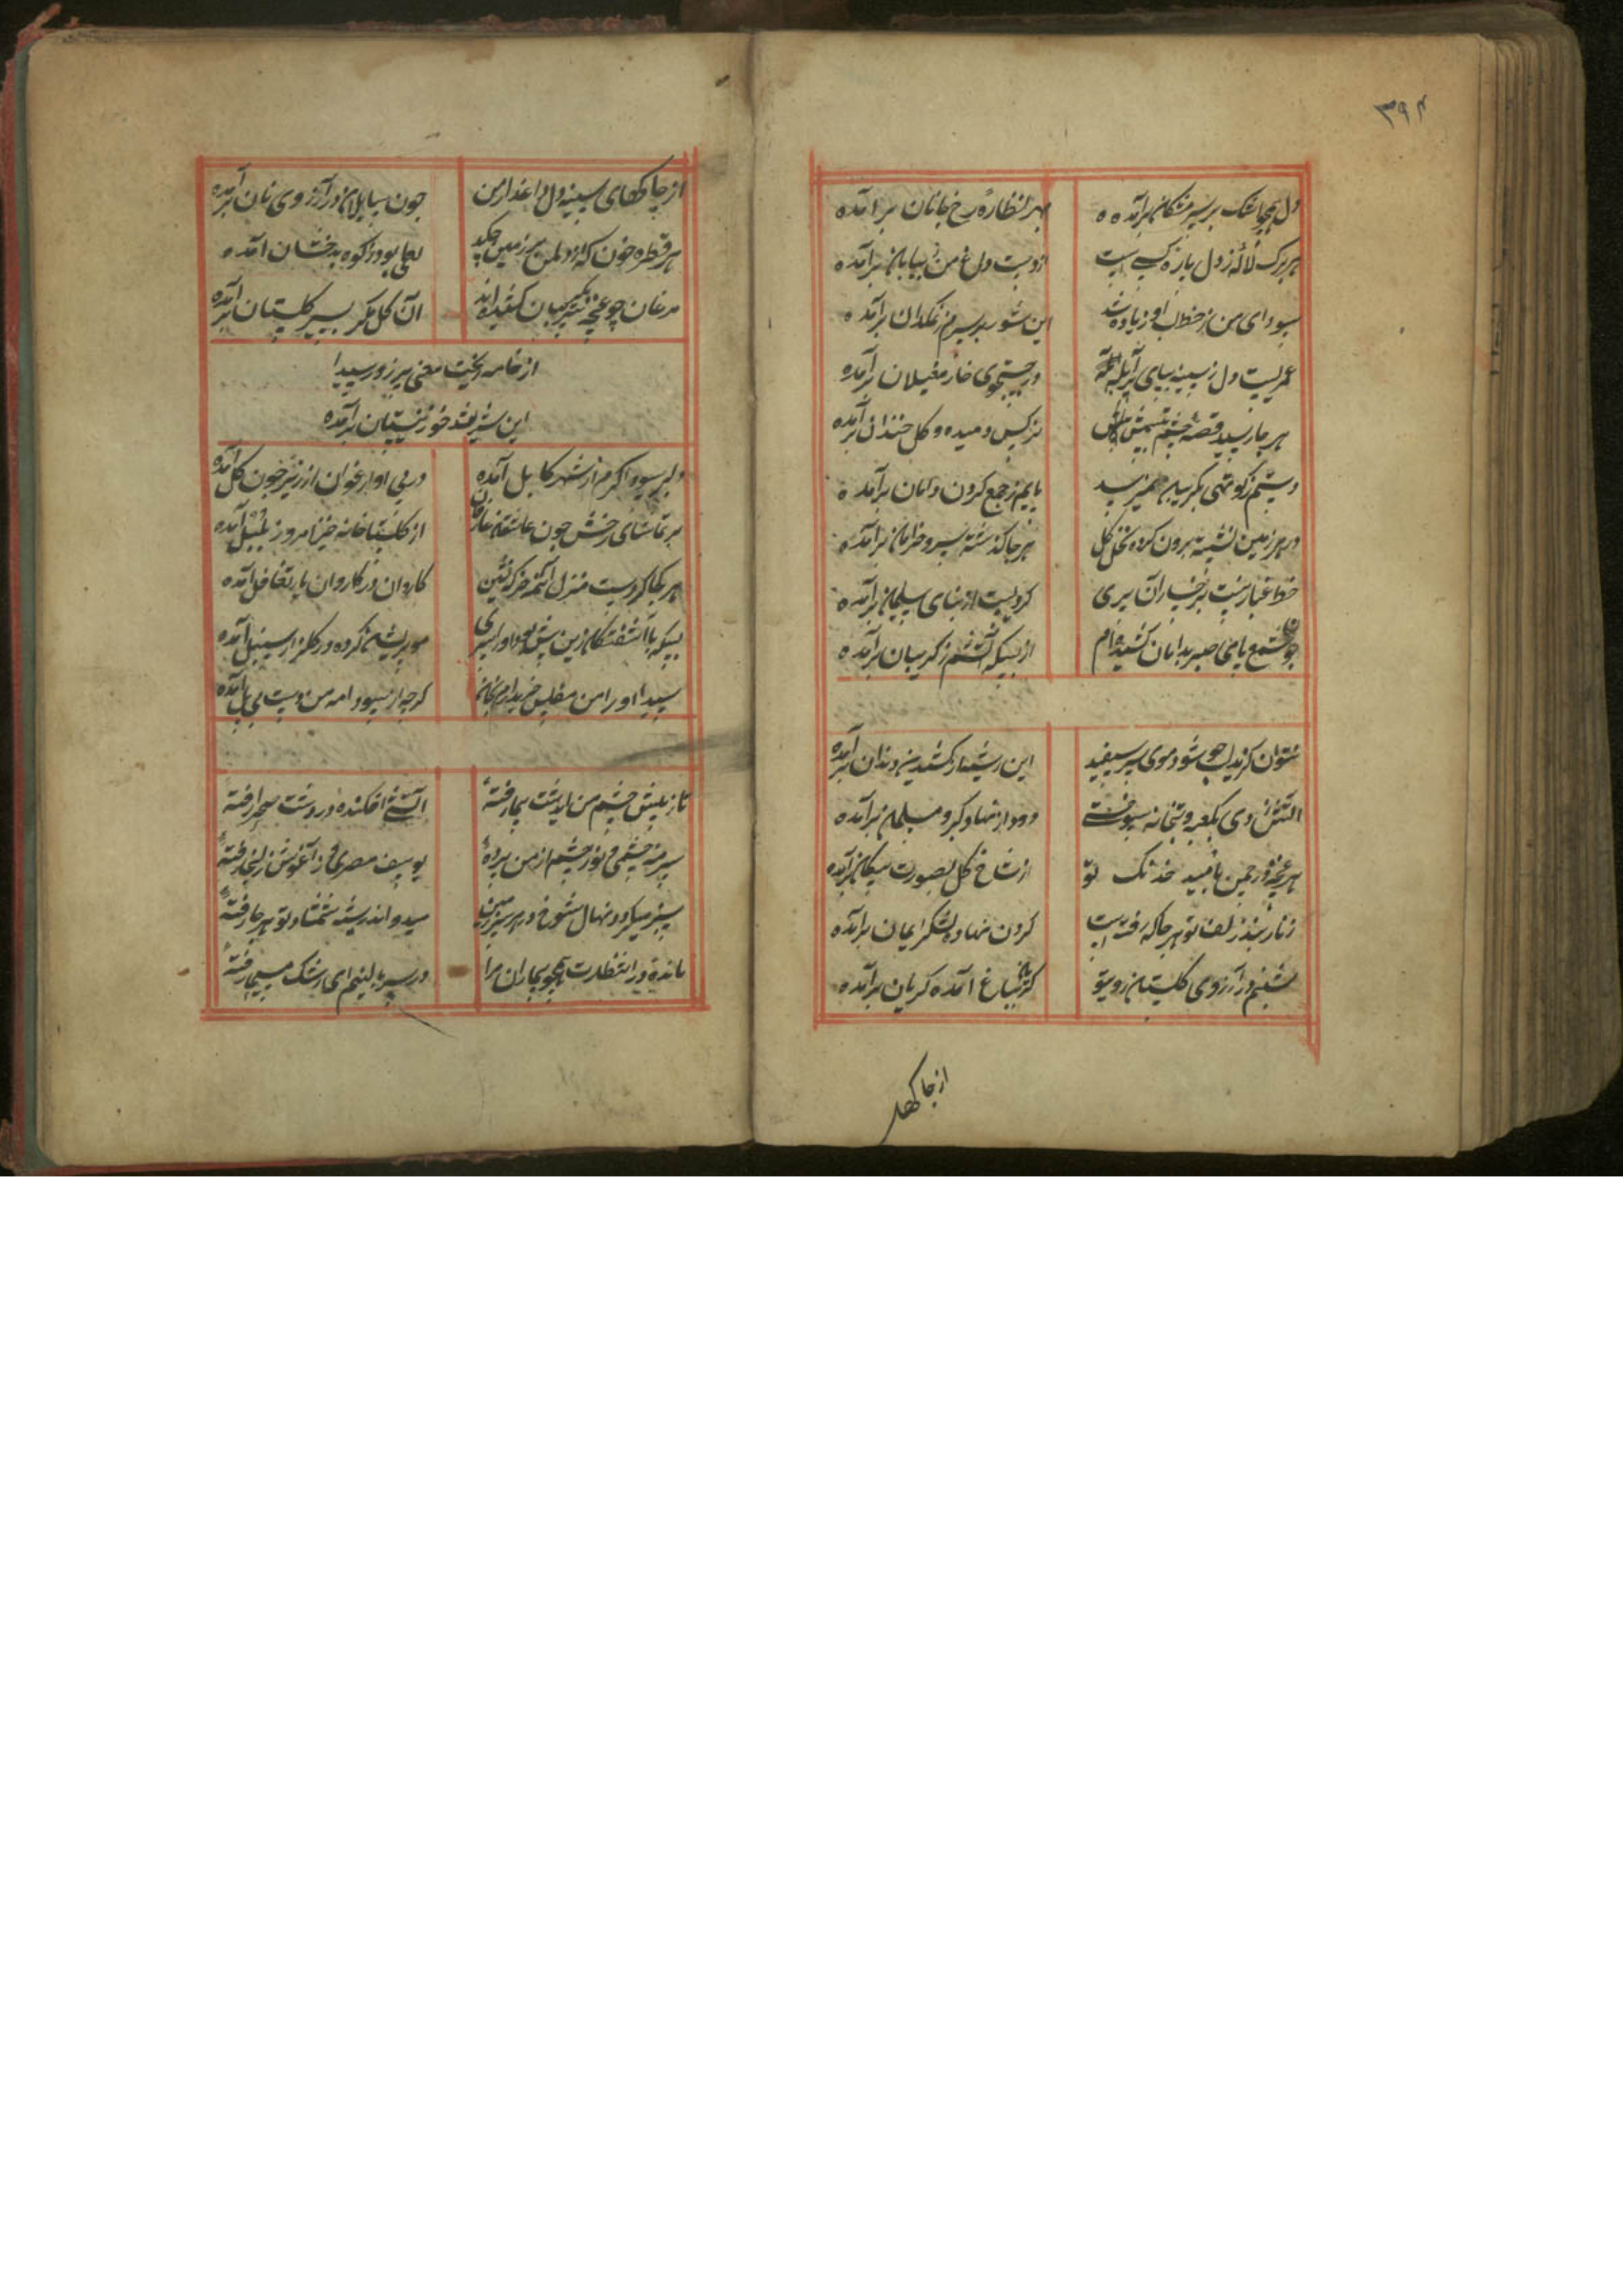 ۳۹۴
دل همچو اشک بر سر مژگان برآمده
بهر نظارهٔ رخ جانان برآمده
هر برک لاله ز دل پاره کسی است
از دست داغ من ز بیابان برآمده
سودای من ز خط لب او زیاده شد
این شور بر سرم ز نمکدان برآمده
عمریست دل ز سینه بپای پر آبله
در جستجوی خار مغیلان برآمده
هر جا رسید قصه چشم
نرکس دمیده و کل خندان برآمده
دستم ز کوتهی بکریبان نمیرسد
پایم ز جمع کردن دامان برآمده
در هر زمین نشسته برون کرده نخل کل
هر جا کذشته سرو خرامان برآمده
خط غبار نیست بر خسار آن پری
کردیست از بنای سلیمان برآمده
چون شمع پای صبر بدامان کشیده‌ام
از بسکه آتشم ز کریبان برآمده
نتوان کزید لب چو شود موی سر سفید
این ریشها ز کشت دندان برآمده
آتش زدی بکعبه و بتخانه سوختی
دود از نهاد کبر و مسلمان برآمده
هر غنچه در چمن بامید خدنک تو
از شاخ کل بصورت پیکان برآمده
زنار بند زلف تو هر جا که رفته است
کردن نهاده لشکر ایمان برآمده
شبنم در آرزوی کلستان روی تو
کریان بباغ آمده کریان برآمده
از چاکهای
از چاکهای سینه دل داغدار من
چون سایلان در آرزوی نان برآمده
هر قطره خون که از دل من بر زمین چکید
لعلی بود ز کوه بدخشان آمده
مرغان چو غنچه سر بکریبان کشیده‌اند
آن کل مکر بسیر کلستان برآمده
از خامه ریخت معنی پر زور سیدا
این شیر نقد خود ز نیستان برآمده
دلبر سوداکرم از شهر کابل آمده
در پی او ارغوان از زیر خون کل آمده
بر تماشای رخش چون عاشقان
از کلستان خانه خیز امروز بلبل آمده
هر کجا کردست منزل
کاروان در کاروان بار تغافل آمده
بسکه با آشفتکان زین پیش بود او را سری
مو پریشان کرده در کلزار سنبل آمده
سیدا او را من مفلس خریدارم بجان
کرچه از سودا مه من دست بی پل آمده
تا ز پیش چشم من ایدشت پیما رفتهٔ
آتشی افکنده در دشت صحرا رفتهٔ
سرمه چشمی و نور چشم از من بردهٔ
یوسف مصری و از آغوش زلیخا رفتهٔ
سبز میکردد نهال شوخ در هر سرزمین
میدواند ریشه شمشاد تو هر جا رفتهٔ
مانده در انتظارت همچو بیماران مرا
در سر بالینم ای رشک مسیحا رفتهٔ